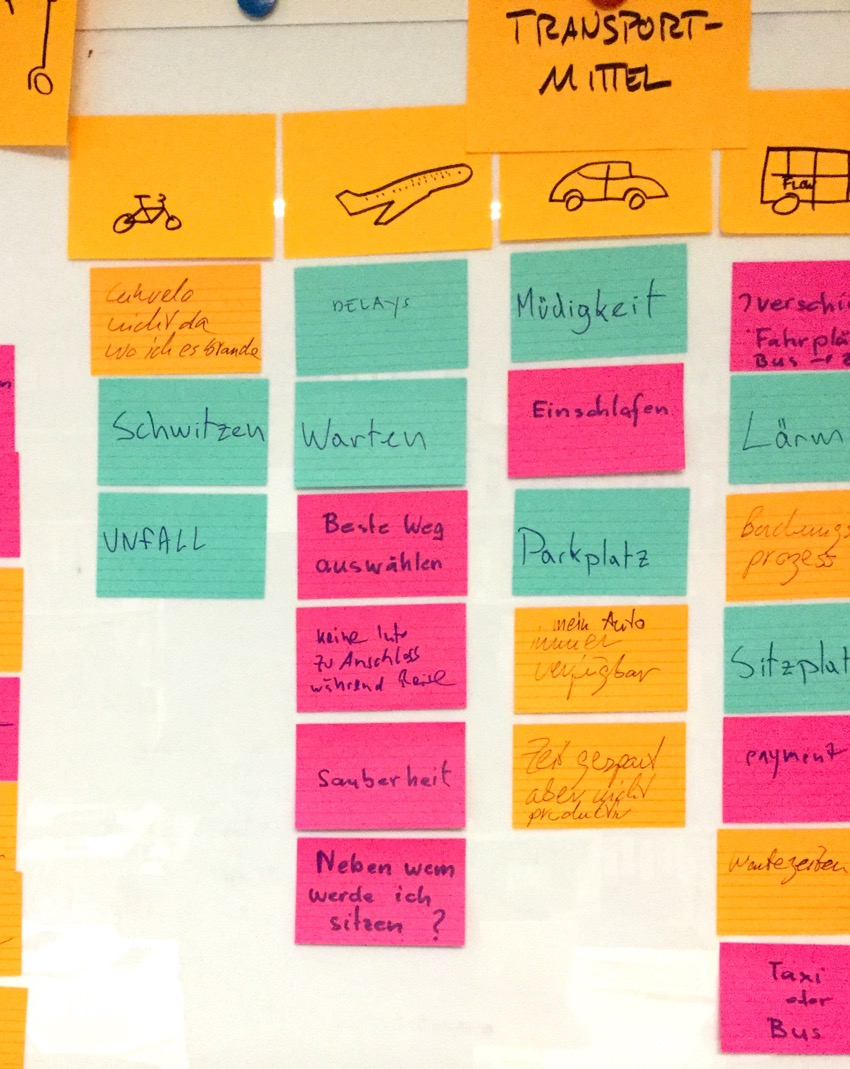 TRANSPORT-
MITTEL
nicht da
wo ich es
Schwitzen
UNFALL
DELAYS
Warten
Beste Weg
auswählen
keine Info
zu Anschloss
während Reise
Sauberheit
Neben wem
werde ich
sitzen ?
Müdigkeit
Einschlafen
Parkplatz
mein Auto
immer
verfügbar
Zeit gespart
aber nicht
produktiv
FLOW
? verschi
Fahrplä
Bus →
Lärm
Buchungs
prozess
Sitzplat
payment
Wartezeiten
Taxi
oder
Bus